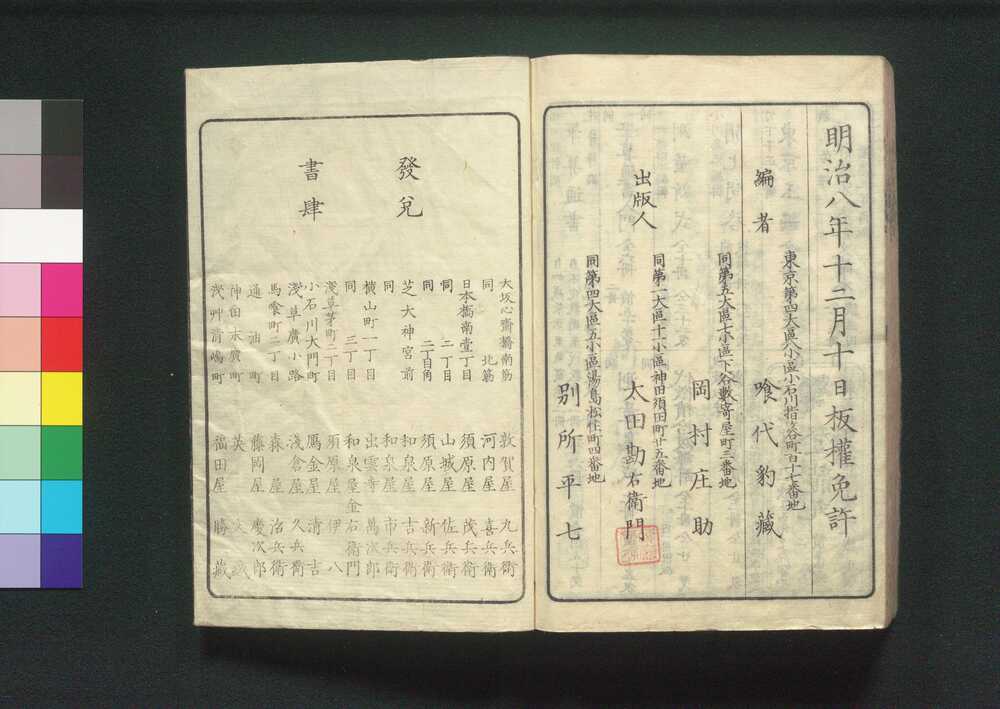 明治八年十二月十日板權免許
東京第四大區八小區小石川指ヶ谷町百十七番地
編者 喰代豹藏
同第五大區七小區下谷數寄屋町三番地
岡村庄助
同第一大區十一小區神田須田町廿五番地
出版人 太田勘右衞門
同第四大區五小區湯島松住町四番地
別所平七
發兌
書肆
大坂心齋橋南筋 敦賀屋九兵衞
同 北筋 河内屋喜兵衞
日本橋南壹丁目 須原屋茂兵衞
同 二丁目 山城屋佐兵衞
同 二丁目角 須原屋新兵衞
芝大神宮前 和泉屋吉兵衞
同 和泉屋市兵衞
横山町一丁目 出雲寺萬次郎
同 三丁目 和泉屋金右衞門
淺草茅町二丁目 須原屋伊八
小石川大門町 鴈金屋清吉
淺草廣小路 淺倉屋久兵衞
馬喰町二丁目 森屋治兵衞
通油町 藤岡屋慶次郎
神田末廣町 英
淺艸清嶋町 福田屋勝藏